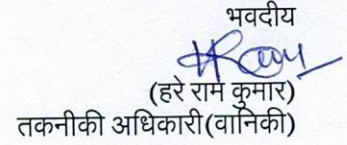 भवदीय
(हरे राम कुमार)
तकनीकी अधिकारी(वानिकी)